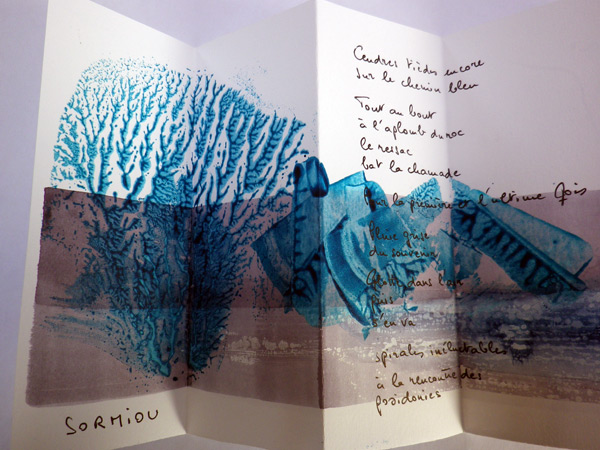 Cendres tièdes encore
sur le chemin bleu
Tout au bout
à l'aplomb du roc
le ressac
bat la chamade
Pour la première et l'ultime fois
Plume grise
du souvenir
flotte dans l'air
puis
s'en va
spirales inéluctables
à la rencontre des
posidonies
SORMIOU